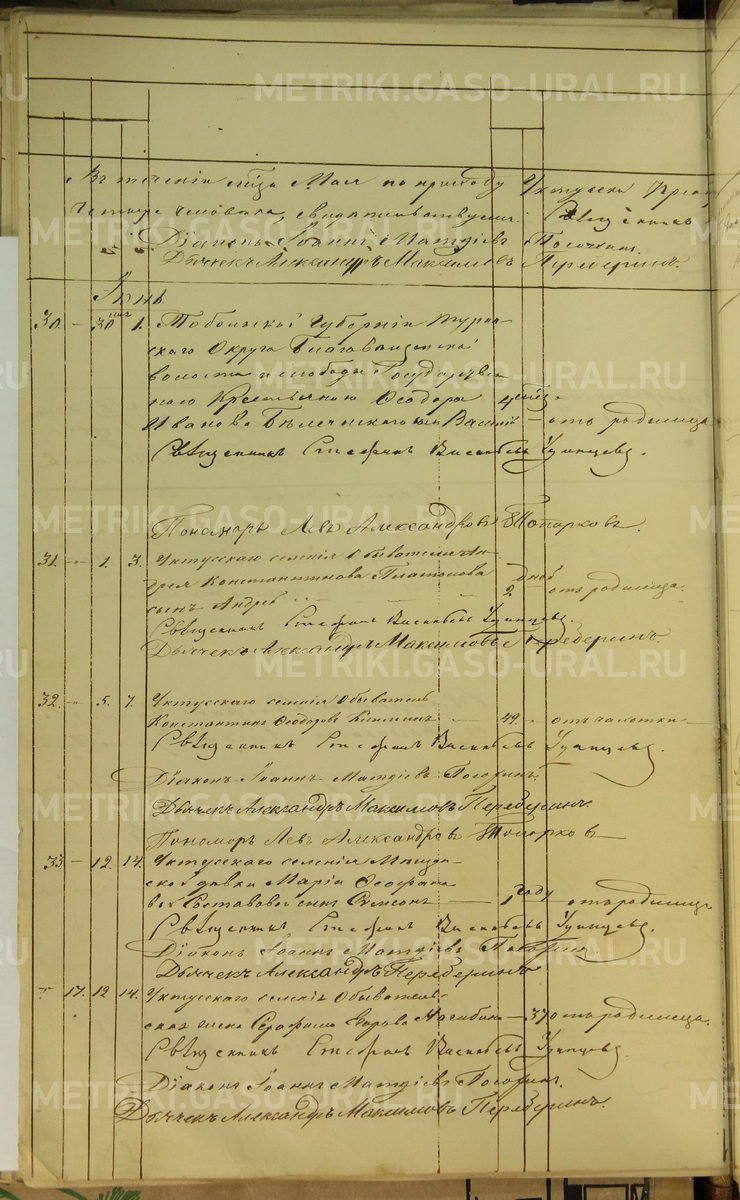 METRIKI.GASO-URAL.RU
Въ теченіи мѣсяца Мая по приходу Уктусской
четыре человѣка, свидѣтельствуемъ: Священникъ
Діаконъ Іоаннъ Матдіевъ
Дьячекъ Александръ Максимовъ Передеринъ.
Іюнь
30. — 30 1. Тобольской Губерніи
скаго Округа Благовѣщенской
волости и слободы Государствен
наго Крестьянина Ѳеодора
Иванова сынъ Василій — отъ родимца
Священникъ Стефанъ Васильевъ Удинцевъ.
Пономарь Левъ Александровъ Топорковъ.
31. — 1. 3. Уктусскаго селенія Обывателя Ан-
дрея Константинова Платонова дней
сынъ Андрей — 2 — отъ родимца.
Священникъ Стефанъ Васильевъ Удинцевъ.
Дьячекъ Александръ Максимовъ Передеринъ.
32. — 5. 7. Уктусскаго селенія Обыватель
Константинъ Ѳеодоровъ — 49. — отъ чахотки —
Священникъ Стефанъ Васильевъ Удинцевъ.
Діаконъ Іоаннъ Матдіевъ
Дьячекъ Александръ Максимовъ Передеринъ.
Пономарь Левъ Александровъ Топорковъ
33. — 12 14. Уктусскаго селенія Мащан-
ской дѣвки Маріи году
сынъ Симеонъ — 1 отъ родимца
Священникъ Стефанъ Васильевъ Удинцевъ.
Діаконъ Іоаннъ Матдіевъ
Дьячекъ Александръ Передеринъ
— 17. 12 14. Уктусскаго селенія Обыватель-
ская жена Егорова — 37 отъ родимца.
Священникъ Стефанъ Васильевъ Удинцевъ.
Діаконъ Іоаннъ Матдіевъ
Дьячекъ Александръ Максимовъ Передеринъ.